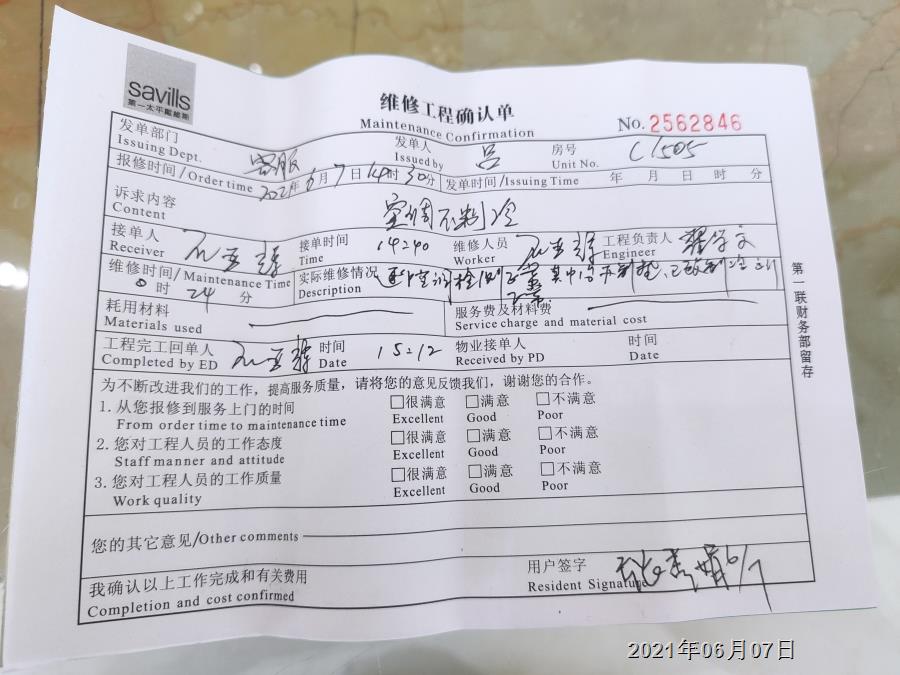 savills
第一太平戴维斯
维修工程确认单
Maintenance Confirmation
No. 2562846
发单部门 客服 发单人 吕 房号 C1505
Issuing Dept. Issued by Unit No.
报修时间/Order time 2021年6月7日14时30分 发单时间/Issuing Time 年 月 日 时 分
诉求内容 空调不制冷
Content
接单人 接单时间 14:40 维修人员 工程负责人
Receiver Time Worker Engineer
维修时间/Maintenance Time 实际维修情况
0时24分 Description
耗用材料 服务费及材料费
Materials used Service charge and material cost
工程完工回单人 时间 15:12 物业接单人 时间
Completed by ED Date Received by PD Date
为不断改进我们的工作，提高服务质量，请将您的意见反馈我们，谢谢您的合作。
1. 从您报修到服务上门的时间 □很满意 □满意 □不满意
From order time to maintenance time Excellent Good Poor
2. 您对工程人员的工作态度 □很满意 □满意 □不满意
Staff manner and attitude Excellent Good Poor
3. 您对工程人员的工作质量 □很满意 □满意 □不满意
Work quality Excellent Good Poor
您的其它意见/Other comments
我确认以上工作完成和有关费用 用户签字 6/7
Completion and cost confirmed Resident Signature
第一联财务部留存
2021年06月07日